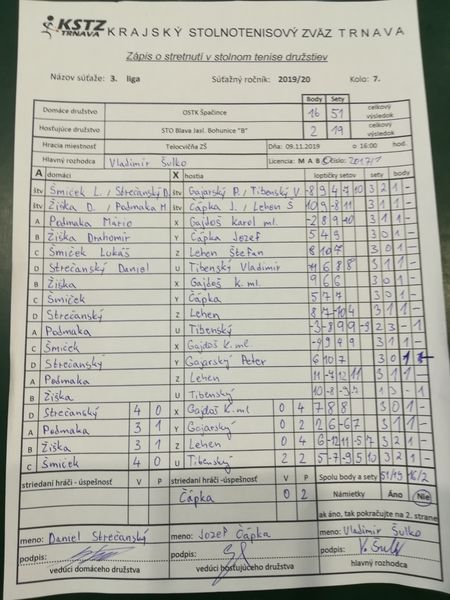 KSTZ TRNAVA KRAJSKÝ STOLNOTENISOVÝ ZVÄZ TRNAVA
Zápis o stretnutí v stolnom tenise družstiev
Názov súťaže: 3. liga Súťažný ročník: 2019/20 Kolo: 7.
Body Sety
Domáce družstvo OSTK Špačince 16 51 celkový výsledok
Hosťujúce družstvo STO Blava Jasl. Bohunice "B" 2 19 celkový výsledok
Hracia miestnosť Telocvičňa ZŠ Dňa: 09.11.2019 o 16:00 hod.
Hlavný rozhodca Vladimír Šulko Licencia: M A B C číslo: 2017/1
A domáci X hostia loptičky setov sety body
štv Šmiček L. / Strečanský D. štv Gajarský P. / Tibenský V. -8 9 4 7 10 3 2 1 -
štv Žiška D. / Podmaka M. štv Čápka J. / Lehen Š 10 9 -8 11 3 1 1 -
A Podmaka Mário X Gajdoš Karol ml. -2 8 9 10 3 1 1 -
B Žiška Drahomír Y Čápka Jozef 5 4 9 3 0 1 -
C Šmiček Lukáš Z Lehen Štefan 8 10 7 3 0 1 -
D Strečanský Daniel U Tibenský Vladimír -11 6 8 8 3 1 1 -
B Žiška X Gajdoš K. ml. 9 6 6 3 0 1 -
C Šmiček Y Čápka 5 7 7 3 0 1 -
D Strečanský Z Lehen 8 7 -10 4 3 1 1 -
A Podmaka U Tibenský -3 -8 9 9 -9 2 3 - 1
C Šmiček X Gajdoš K. ml -9 9 4 9 3 1 1 -
D Strečanský Y Gajarský Peter 6 10 7 3 0 1 -
A Podmaka Z Lehen 11 -7 12 11 3 1 1 -
B Žiška U Tibenský 1 3 - 1
D Strečanský 4 0 X Gajdoš K. ml 0 4 7 8 8 3 0 1 -
A Podmaka 3 1 Y Gajarský 0 2 2 6 -6 7 3 1 1 -
B Žiška 3 1 Z Lehen 0 4 6 -12 11 -5 7 3 2 1 -
C Šmiček 4 0 U Tibenský 2 2 5 -7 -9 5 10 3 2 1 -
striedaní hráči - úspešnosť V P striedaní hráči - úspešnosť V P Spolu body a sety 51/19 16/2
Čápka 0 2 Námietky Áno Nie
ak áno, tak pokračujte na 2. strane
meno: Daniel Strečanský meno: Jozef Čápka meno: Vladimír Šulko
podpis: podpis: podpis: V. Šulk
vedúci domáceho družstva vedúci hosťujúceho družstva hlavný rozhodca